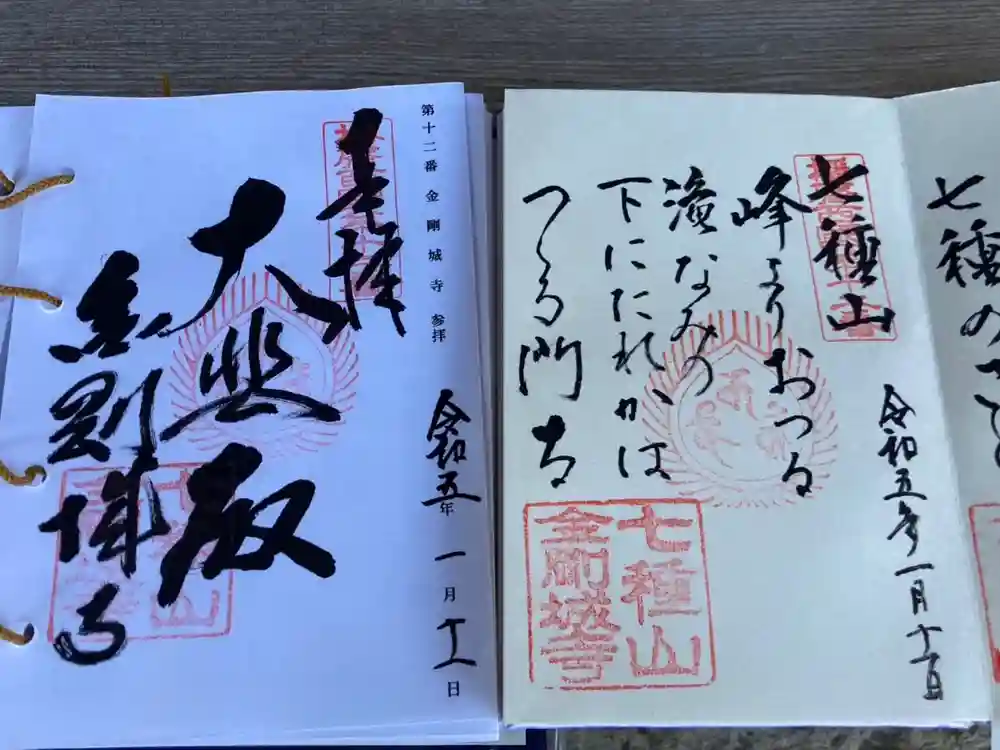 第十二番 金剛城寺 参拝
令和五年一月十一日
奉拝
大悲殿
金剛城寺
七種山
峰よりおつる
滝なみの
下にたれかは
つくる門田
令和五年一月十一日
七種山
金剛城寺
七種の